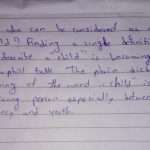 who can be considered as
ld? Finding a single definiti
describe a "child" is becoming
uphill task. The plain dict
ing of the word "child" is
oung person especially between
ncy and youth.